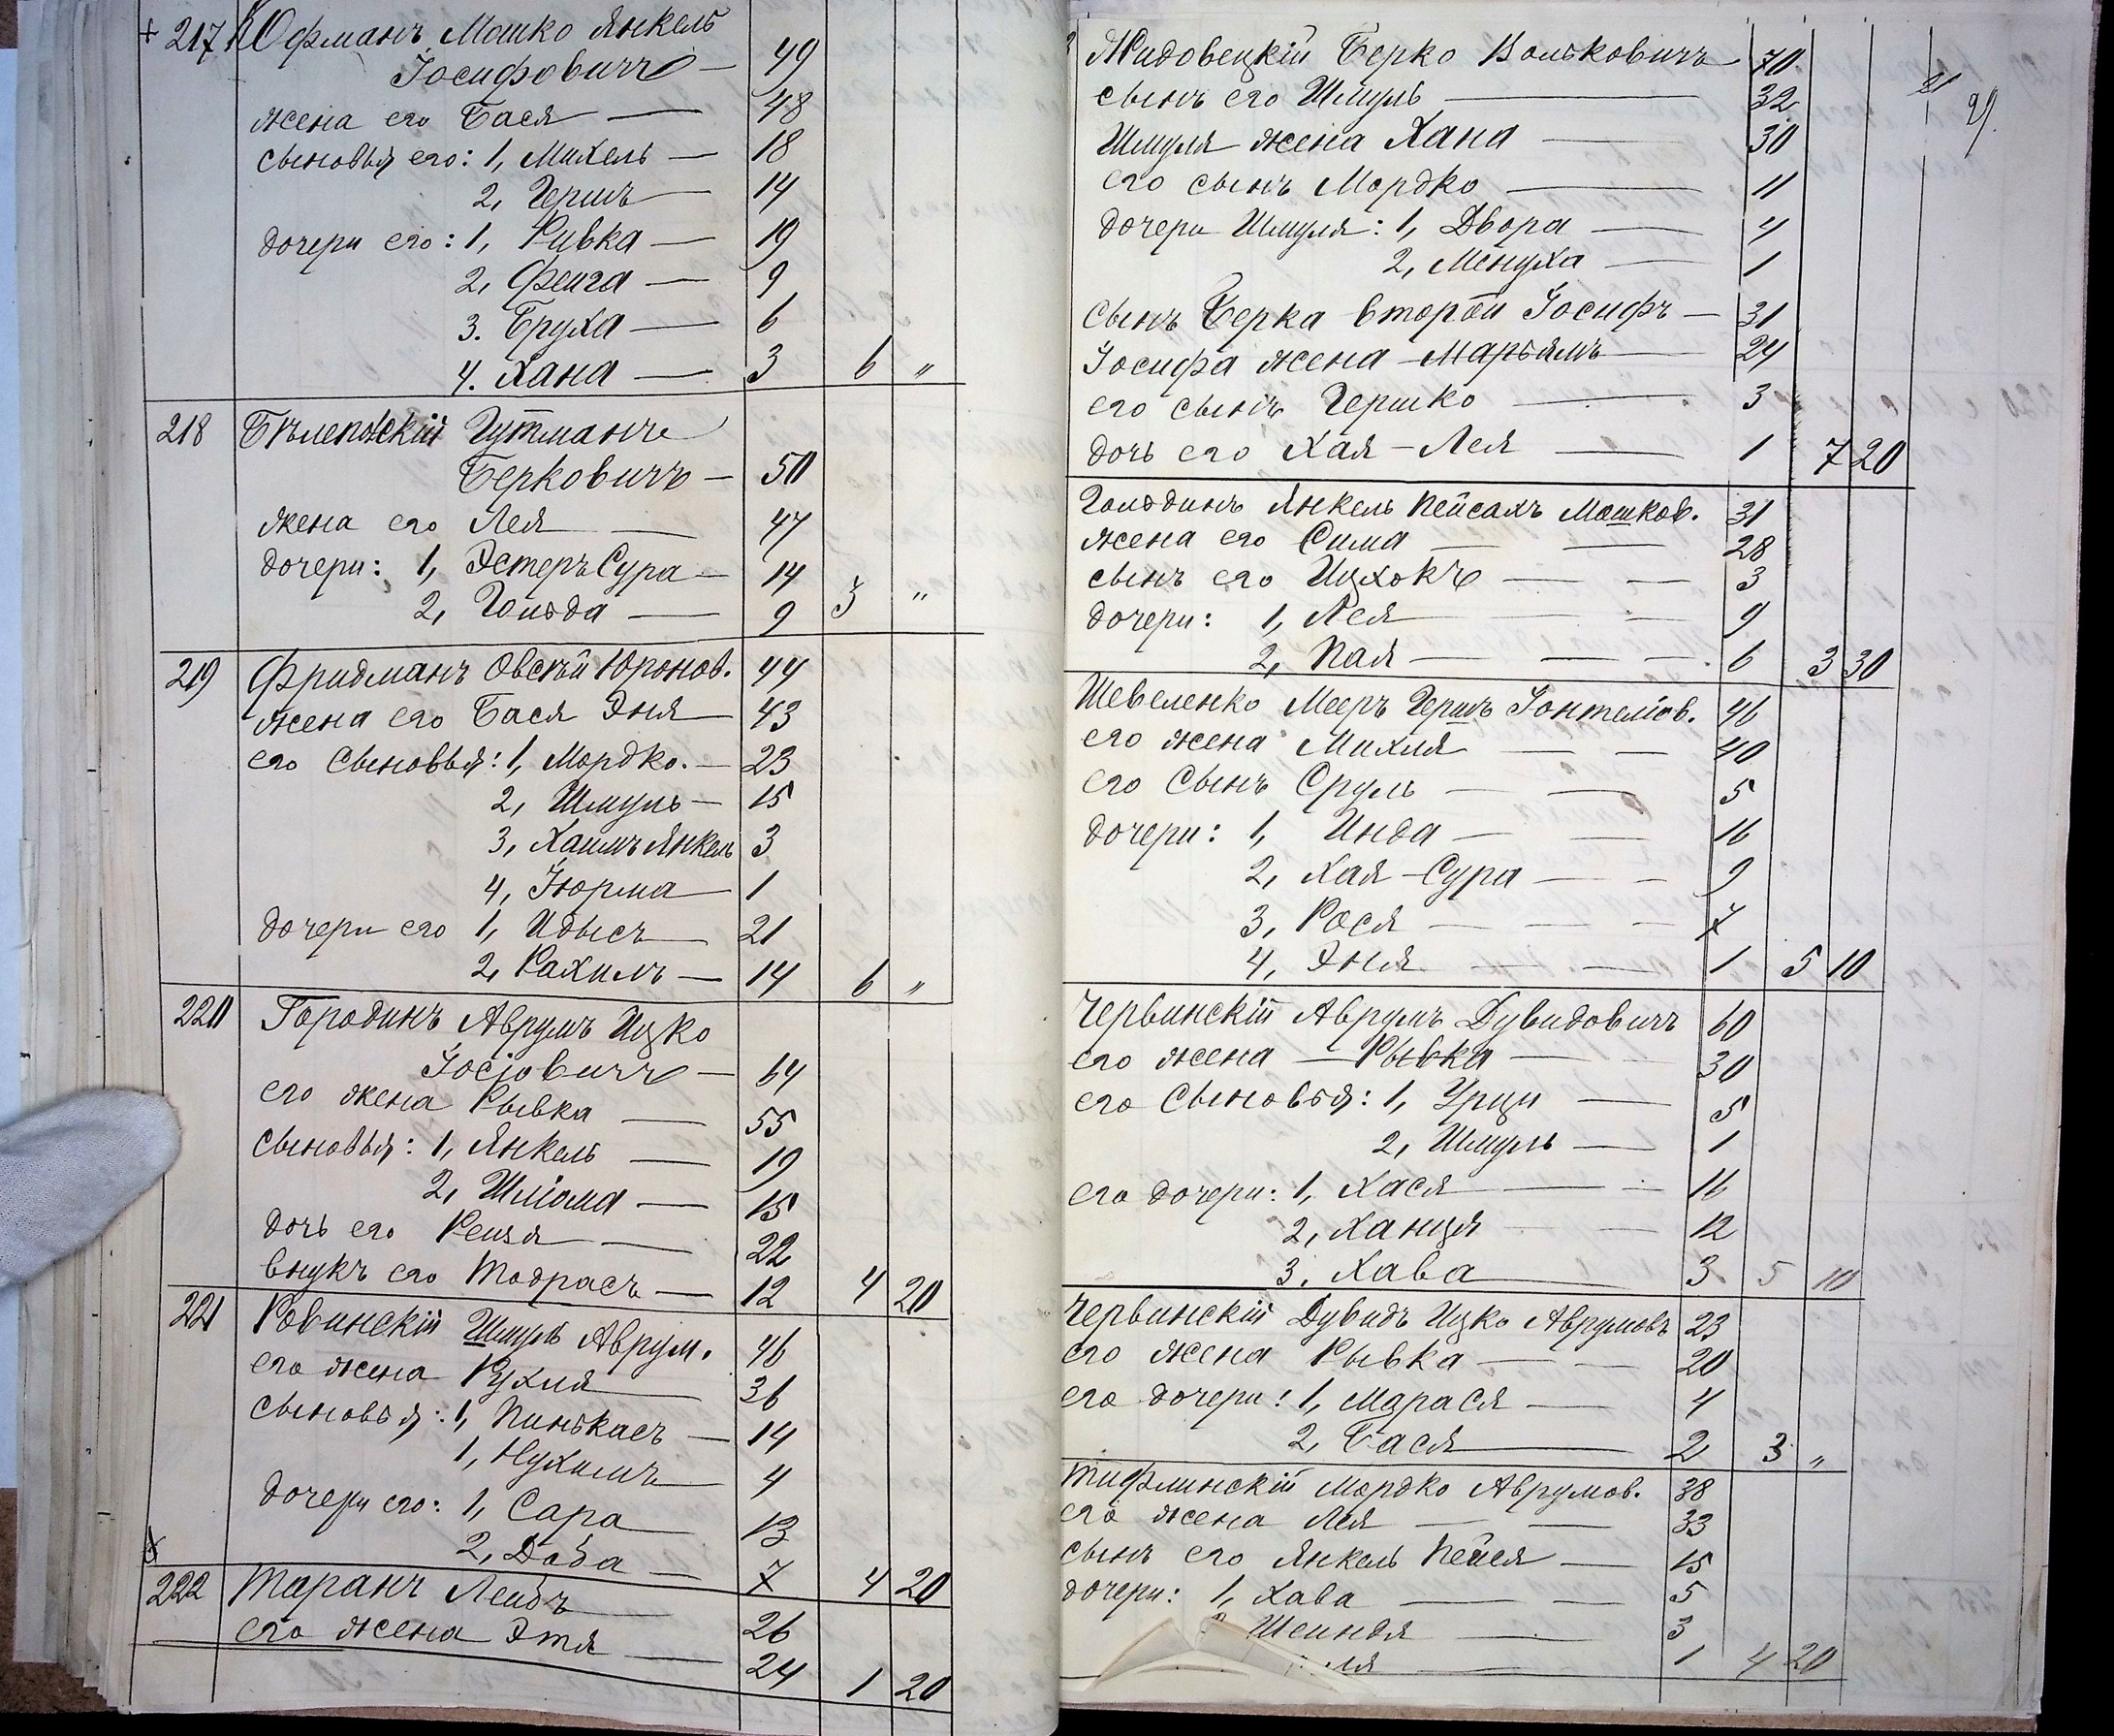 + 217 Юфманъ Мошко Янкель
Іосифовичъ — 49
жена его Бася — 48
сыновья его: 1, Михель — 18
2, Гершъ — 14
дочери его: 1, Ривка — 19
2, Фейга — 9
3. Бруха — 6
4. Хана — 3 6 "
218 Бѣлепожскій Гутманъ
Берковичъ — 50
жена его Лея — 47
дочери: 1, Эстеръ Сура — 14
2, Гольда — 9 3 "
219 Фридманъ Овсѣй Юронов. 44
жена его Бася Эня — 43
его сыновья: 1, Мордко. — 23
2, Шмуль — 15
3, Хаимъ Янкель 3
4, Іюрма — 1
дочери его 1, Идысъ — 21
2, Рахиль — 14 6 "
220 Городинъ Аврумъ Ицко
Іосіовичъ — 64
его жена Рывка — 55
сыновья: 1, Янкель — 19
2, Шліома — 15
дочь его Рейзя — 22
внукъ его Тодрасъ — 12 4 20
221 Ровинскій Шмуль Аврум. 46
его жена Рухля — 36
сыновья: 1, Пинькасъ — 14
1, Нухимъ — 4
дочери его: 1, Сара — 13
2, Доба — 7 4 20
222 Таранъ Лейбъ — 26
его жена Этя — 24 1 20
Жидовецкій Берко Вольковичъ 70
сынъ его Шмуль — 32
Шмуля жена Хана — 30
его сынъ Мордко — 11
дочери Шмуля: 1, Двора — 4
2, Менуха — 1
сынъ Берка второй Іосифъ — 31
Іосифа жена Марьямъ — 24
его сынъ Гершко — 3
дочь его Хая-Лея — 1 7 20
Гольдинъ Янкель Пейсахъ Мошков. 31
жена его Сима — 28
сынъ его Ицхокъ — 3
дочери: 1, Лея — 9
2, Пая — 6 3 30
Шевеленко Мееръ Гершъ Іонтелiов. 46
его жена Михля — 40
его сынъ Сруль — 5
дочери: 1, Инда — 16
2, Хая-Сура — 9
3, Рося — 7
4, Эня — 1 5 10
Червинскій Аврумъ Дувидовичъ 60
его жена — Рывка — 30
его сыновья: 1, Урци — 5
2, Шмуль — 1
его дочери: 1, Хася — 16
2, Ханця — 12
3, Хава — 3 5 10
Червинскій Дувидъ Ицко Аврумовъ 23
его жена Рывка — 20
его дочери: 1, Марася — 4
2, Бася — 2 3 "
Тифлинскій Мордко Аврумов. 38
его жена Лея — 33
сынъ его Янкель Пейся — 15
дочери: 1, Хава — 5
Шейндя — 3
1 4 20